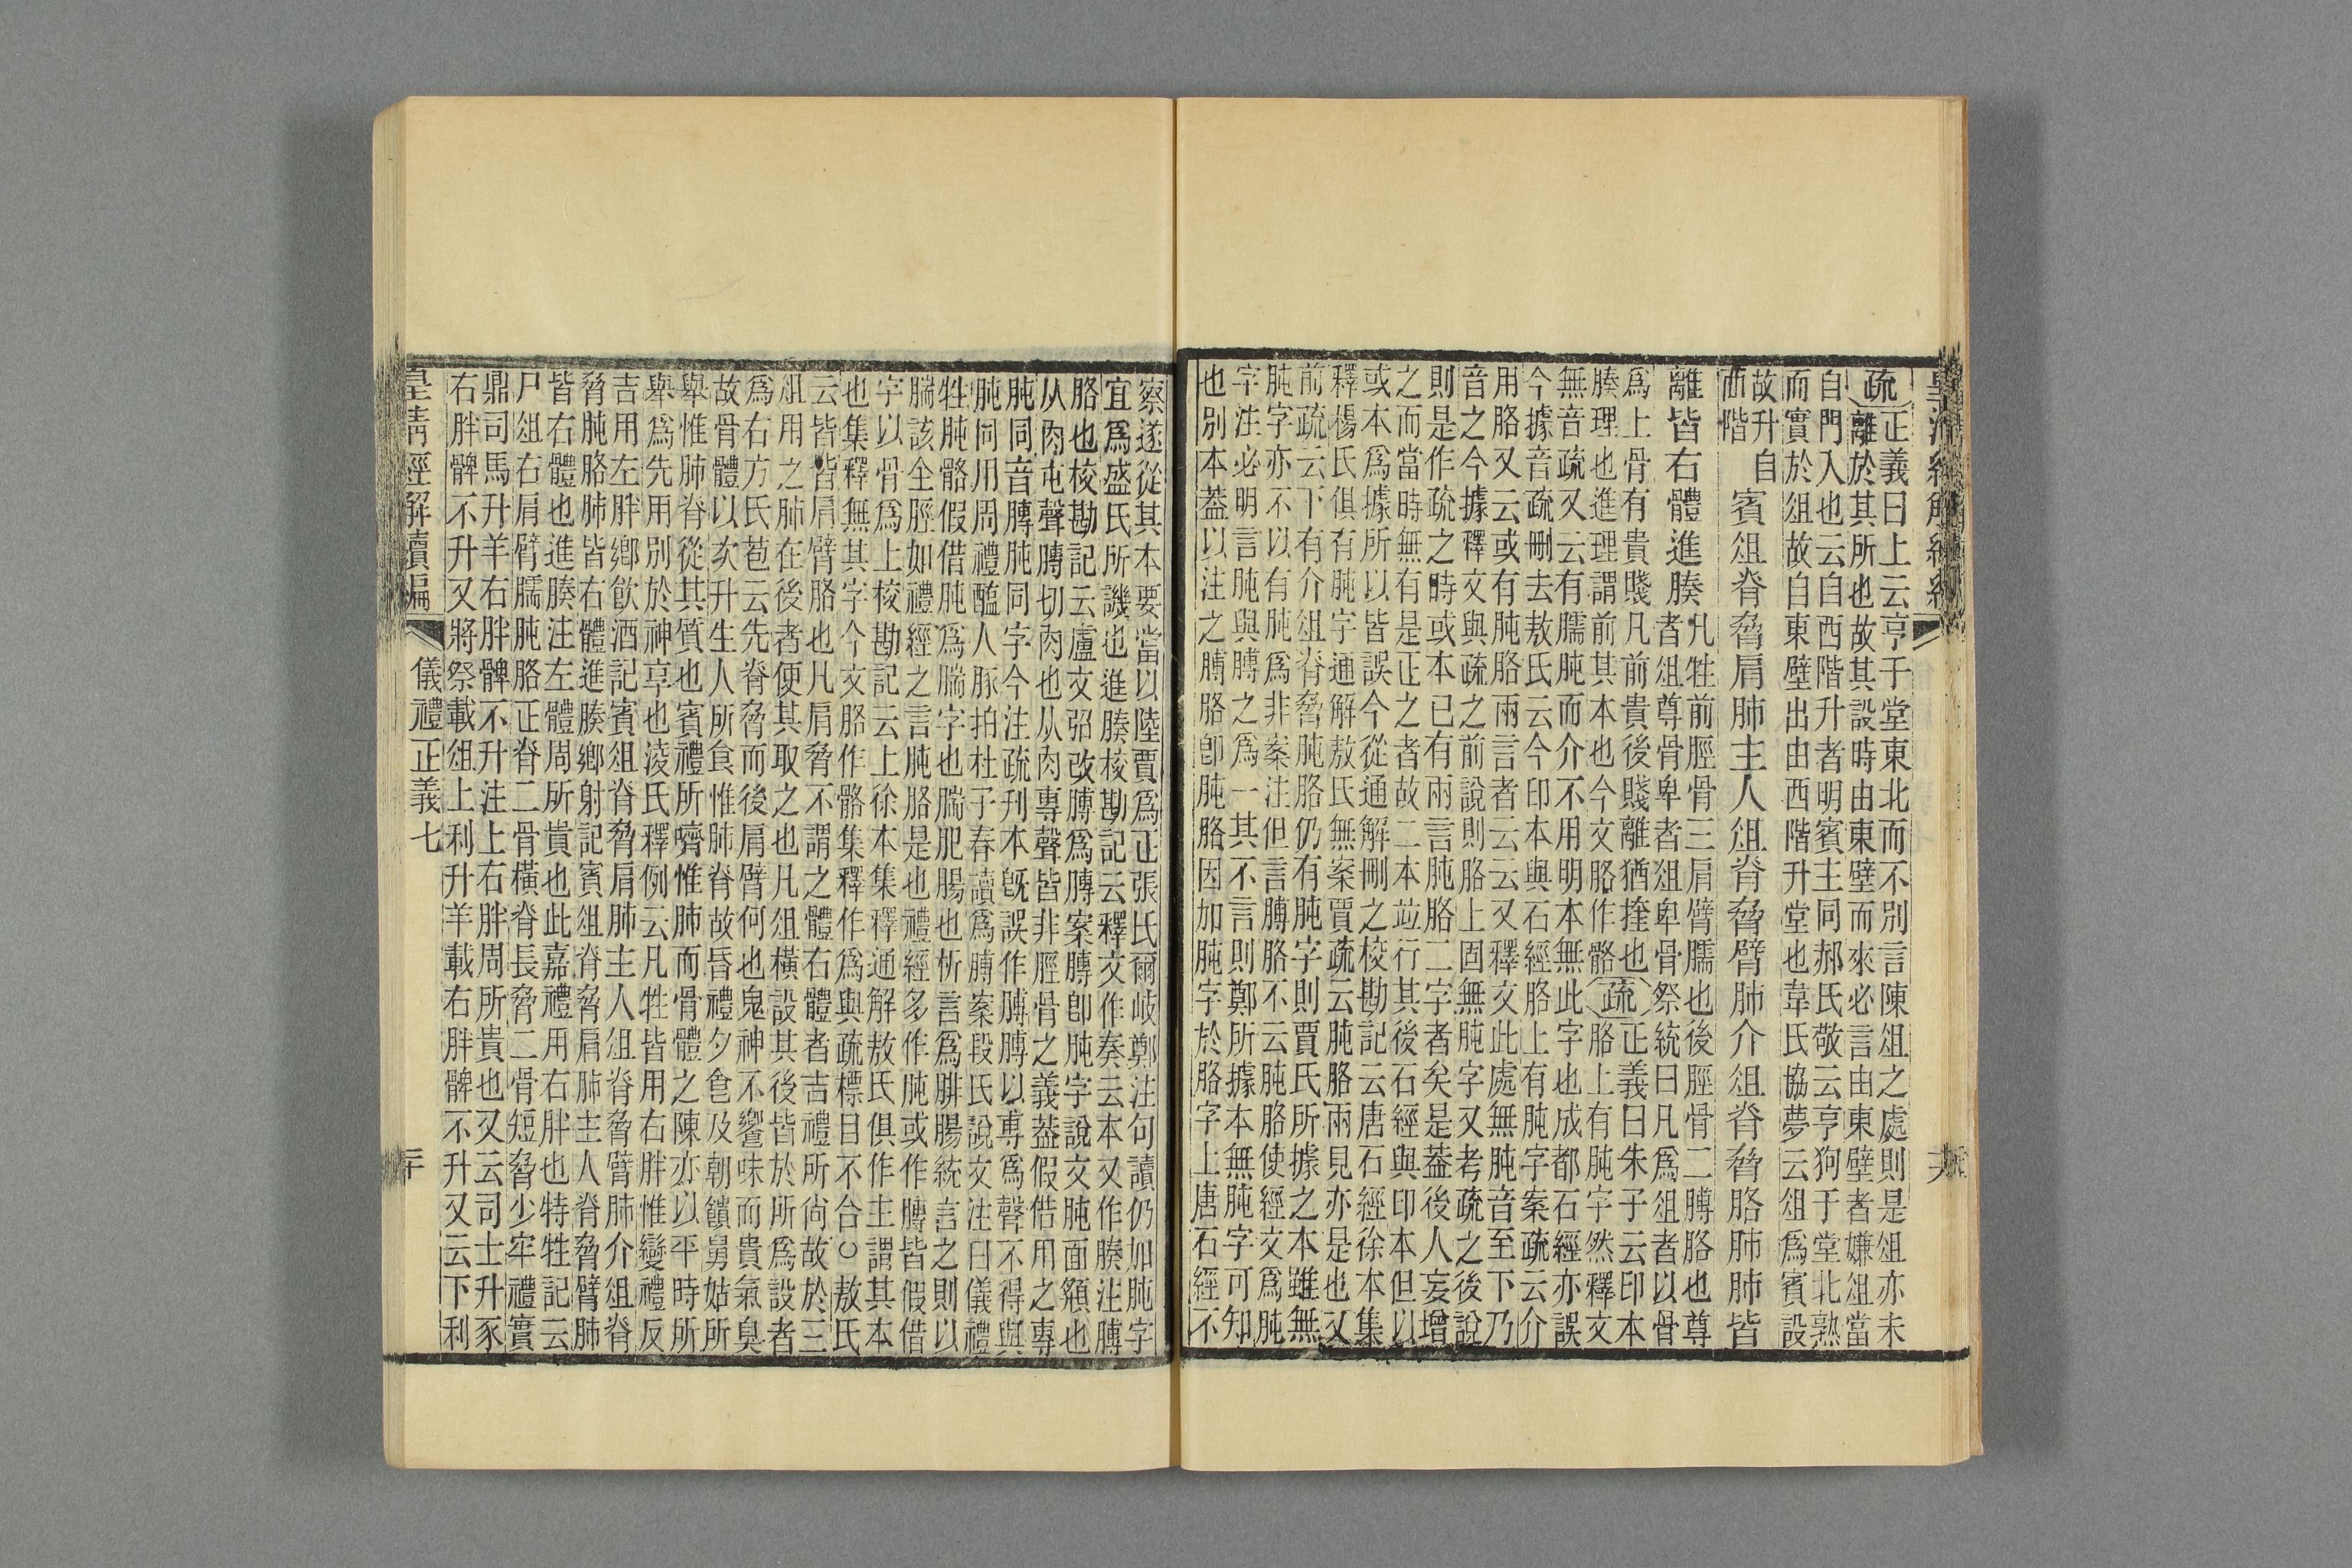 皇清經解續編
疏正義曰上云亨于堂東北而不別言陳俎之處則是俎亦未
離於其所也故其設時由東壁而來必言由東壁者嫌俎當
自門入也云自西階升者明賓主同郝氏敬云亨狗于堂北熟
而實於俎故自東壁出由西階升堂也韋氏協夢云俎爲賓設
故升自
西階
賓俎脊脅肩肺主人俎脊脅臂肺介俎脊脅胳肺肺皆
離皆右體進腠
凡牲前脛骨三肩臂臑也後脛骨二膊胳也尊
者俎尊骨卑者俎卑骨祭統曰凡爲俎者以骨
爲上骨有貴賤凡前貴後賤離猶㧻也
腠理也進理謂前其本也今文胳作骼
疏
正義曰朱子云印本
胳上有肫字然釋文
無音疏又云有臑肫而介不用明本無此字也成都石經亦誤
今據音疏刪去敖氏云今印本與石經胳上有肫字案疏云介
用胳又云或有肫胳兩言者云云又釋文此處無肫音至下乃
音之今據釋文與疏之前說則胳上固無肫字又考疏之後說
則是作疏之時或本已有兩言肫胳二字者矣是蓋後人妄增
之而當時無有是正之者故二本竝行其後石經與印本但以
或本爲據所以皆誤今從通解刪之校勘記云唐石經徐本集
釋楊氏俱有肫字通解敖氏無案賈疏云肫胳兩見亦是也又
前疏云下有介俎脊脅肫胳仍有肫字則賈氏所據之本雖無
肫字亦不以有肫爲非案注但言膊胳不云肫胳使經文爲肫
字注必明言肫與膊之爲一其不言則鄭所據本無肫字可知
也別本蓋以注之膊胳卽肫胳因加肫字於胳字上唐石經不
察遂從其本要當以陸賈爲正張氏爾岐鄭注句讀仍加肫字
宜爲盛氏所譏也進腠校勘記云釋文作奏云本又作腠注膊
胳也校勘記云盧文弨改膊爲膞案膞卽肫字說文肫面頯也
从肉屯聲膞切肉也从肉專聲皆非脛骨之義蓋假借用之專
肫同音膞肫同字今注疏刊本旣誤作膊膊以尃爲聲不得與
肫同用周禮醢人豚拍杜子春讀爲膊案段氏說文注曰儀禮
牲肫骼假借肫爲腨字也腨肥腸也析言爲腓腸統言之則以
腨該全脛如禮經之言肫胳是也禮經多作肫或作膞皆假借
字以骨爲上校勘記云上徐本集釋通解敖氏俱作主謂其本
也集釋無其字今文胳作骼集釋作爲與疏標目不合○敖氏
云皆皆肩臂胳也凡肩脅不謂之體右體者吉禮所尙故於三
俎用之肺在後者便其取之也凡俎橫設其後皆於所爲設者
爲右方氏苞云先脊脅而後肩臂何也鬼神不饗味而貴氣臭
故骨體以次升生人所食惟肺脊故昏禮夕飡及朝饋舅姑所
舉惟肺脊從其質也賓禮所嚌惟肺而骨體之陳亦以平時所
舉爲先用別於神享也淩氏釋例云凡牲皆用右胖惟變禮反
吉用左胖鄉飮酒記賓俎脊脅肩肺主人俎脊脅臂肺介俎脊
脅肫胳肺皆右體進腠鄉射記賓俎脊脅肩肺主人脊脅臂肺
皆右體也進腠注左體周所貴也此嘉禮用右胖也特牲記云
尸俎右肩臂臑肫胳正脊二骨橫脊長脅二骨短脅少牢禮實
鼎司馬升羊右胖髀不升注上右胖周所貴也又云司士升豕
右胖髀不升又將祭載俎上利升羊載右胖髀不升又云下利
皇清經解續編 儀禮正義七